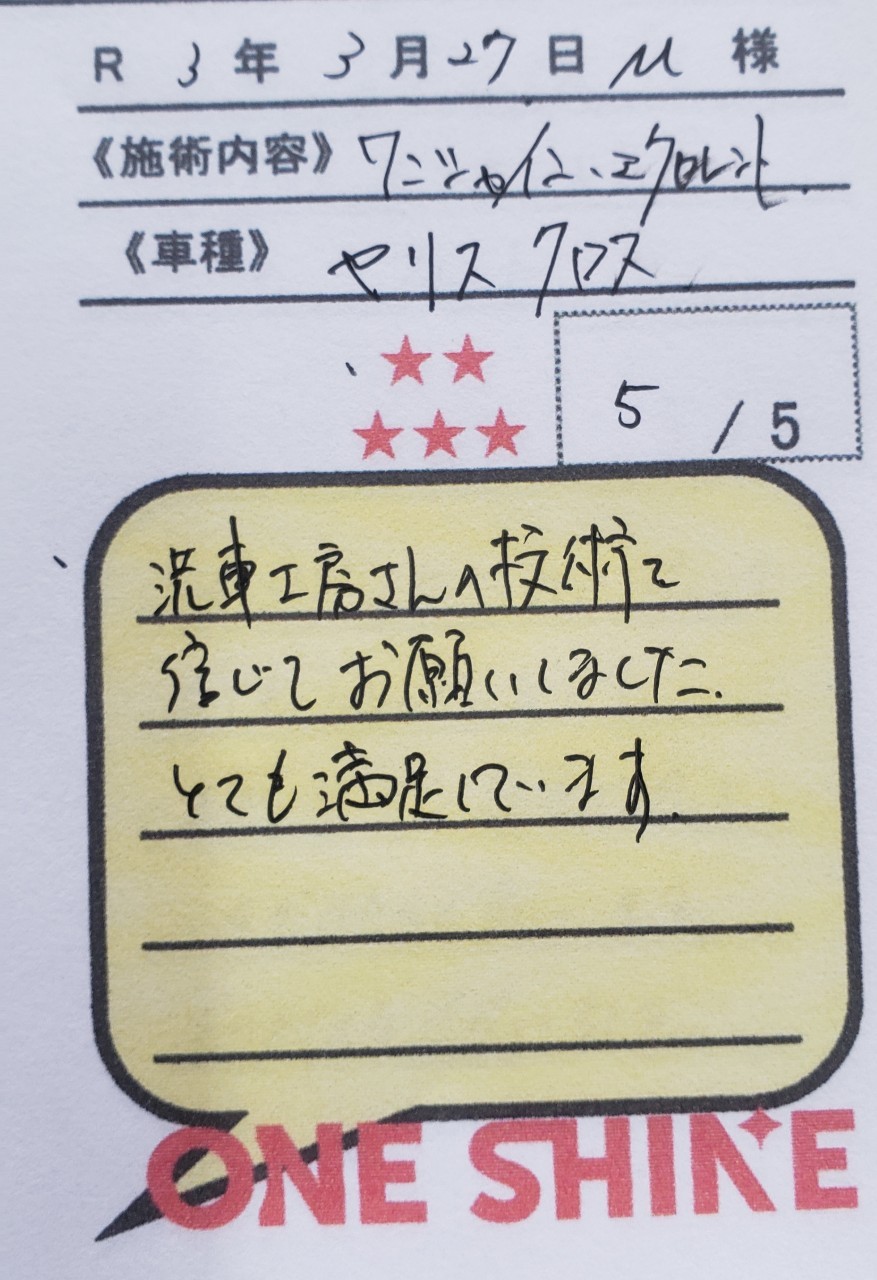 R 3年 3月27日 M 様
《施術内容》 ワンシャイン、エクロレント.
《車種》 ヤリス クロス
5 / 5
洗車工房さんの技術を
信じて お願いしました.
とても満足しています.
ONE SHINE